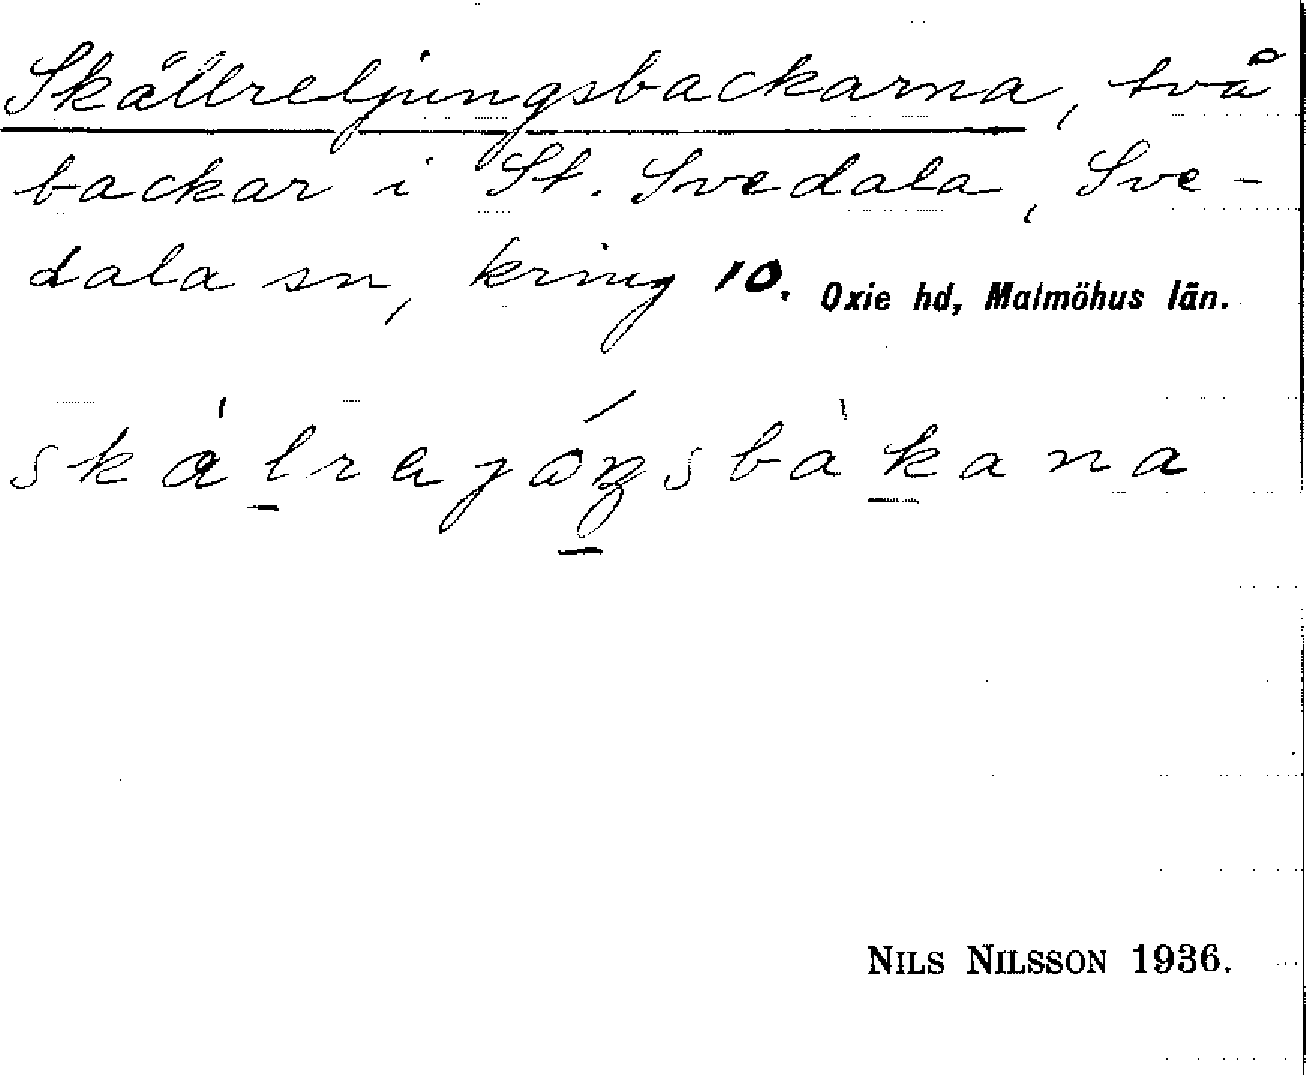 Skällreljungsbackarna, två
backar i St. Svedala, Sve-
dala sn, kring 10. Oxie hd, Malmöhus län.
NILS NILSSON 1936.